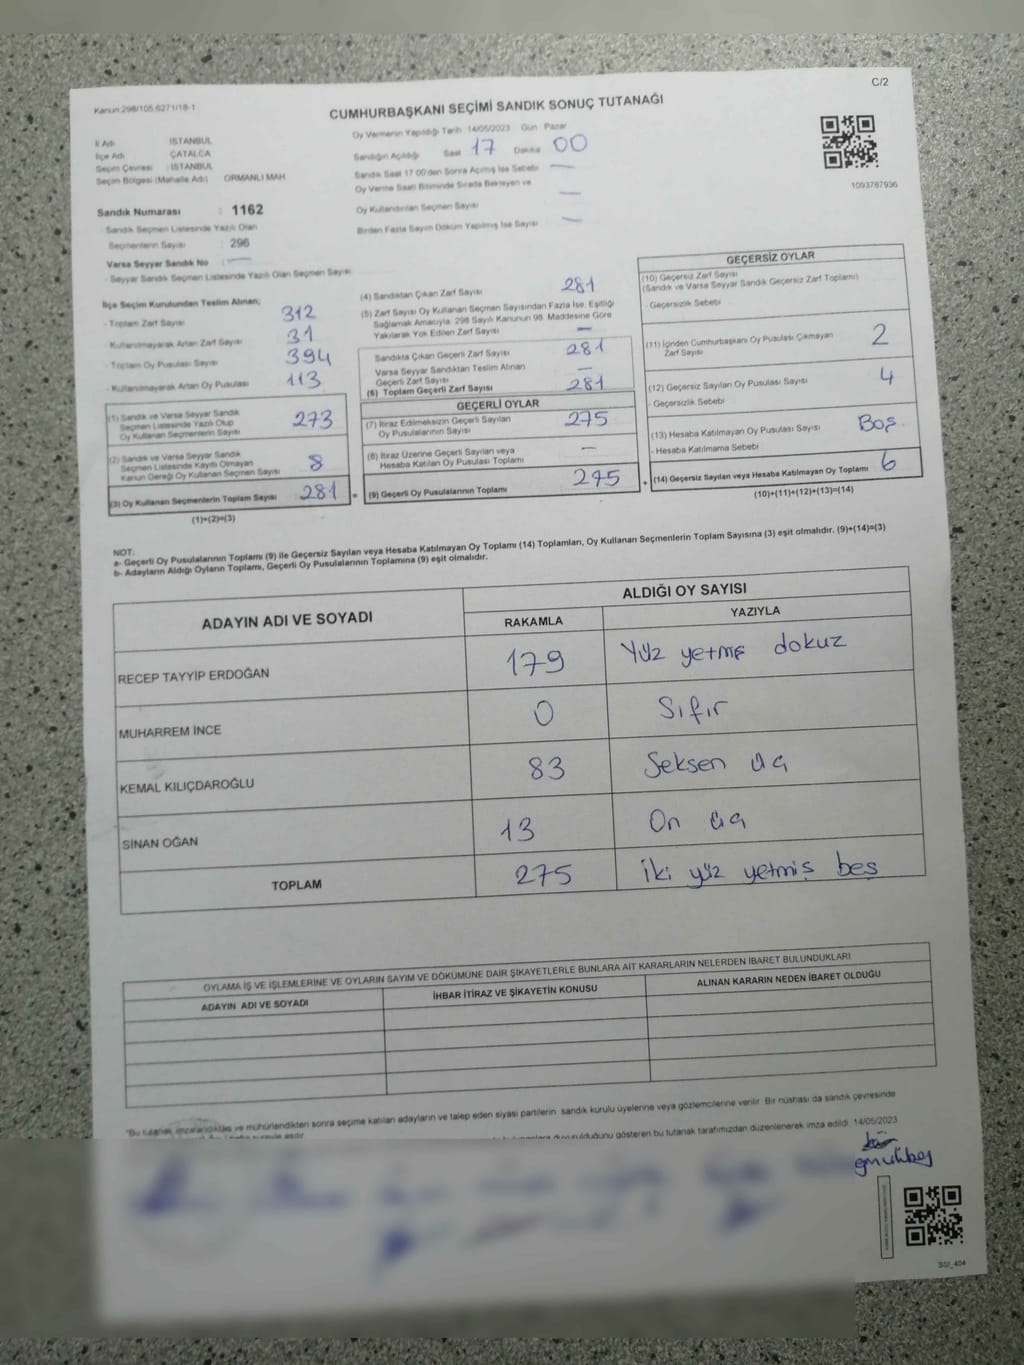 C/2
Kanun:298/105,6271/18-1
CUMHURBAŞKANI SEÇİMİ SANDIK SONUÇ TUTANAĞI
İl Adı : İSTANBUL
İlçe Adı : ÇATALCA
Seçim Çevresi : İSTANBUL
Seçim Bölgesi (Mahalle Adı) ORMANLI MAH
Sandık Numarası : 1162
- Sandık Seçmen Listesinde Yazılı Olan
Seçmenlerin Sayısı : 296
Varsa Seyyar Sandık No : —
- Seyyar Sandık Seçmen Listesinde Yazılı Olan Seçmen Sayısı
Oy Vermenin Yapıldığı Tarih 14/05/2023 Gün Pazar
Sandığın Açıldığı Saat 17 Dakika 00
Sandık Saat 17:00'den Sonra Açılmış İse Sebebi —
Oy Verme Saati Bitiminde Sırada Bekleyen ve
Oy Kullandırılan Seçmen Sayısı —
Birden Fazla Sayım Döküm Yapılmış İse Sayısı —
1093787936
İlçe Seçim Kurulundan Teslim Alınan;
- Toplam Zarf Sayısı 312
- Kullanılmayarak Artan Zarf Sayısı 31
- Toplam Oy Pusulası Sayısı 394
- Kullanılmayarak Artan Oy Pusulası 113
(1) Sandık ve Varsa Seyyar Sandık
Seçmen Listesinde Yazılı Olup
Oy Kullanan Seçmenlerin Sayısı 273
(2) Sandık ve Varsa Seyyar Sandık
Seçmen Listesinde Kayıtlı Olmayan
Kanun Gereği Oy Kullanan Seçmen Sayısı 8
(3) Oy Kullanan Seçmenlerin Toplam Sayısı 281 =
(1)+(2)=(3)
(4) Sandıktan Çıkan Zarf Sayısı 281
(5) Zarf Sayısı Oy Kullanan Seçmen Sayısından Fazla İse, Eşitliği
Sağlamak Amacıyla; 298 Sayılı Kanunun 98. Maddesine Göre
Yakılarak Yok Edilen Zarf Sayısı —
Sandıkta Çıkan Geçerli Zarf Sayısı 281
Varsa Seyyar Sandıktan Teslim Alınan
Geçerli Zarf Sayısı —
(6) Toplam Geçerli Zarf Sayısı 281
GEÇERLİ OYLAR
(7) İtiraz Edilmeksizin Geçerli Sayılan
Oy Pusulalarının Sayısı 275
(8) İtiraz Üzerine Geçerli Sayılan veya
Hesaba Katılan Oy Pusulası Toplamı —
(9) Geçerli Oy Pusulalarının Toplamı 275 +
GEÇERSİZ OYLAR
(10) Geçersiz Zarf Sayısı
(Sandık ve Varsa Seyyar Sandık Geçersiz Zarf Toplamı)
- Geçersizlik Sebebi
(11) İçinden Cumhurbaşkanı Oy Pusulası Çıkmayan
Zarf Sayısı 2
(12) Geçersiz Sayılan Oy Pusulası Sayısı 4
- Geçersizlik Sebebi
(13) Hesaba Katılmayan Oy Pusulası Sayısı Boş
- Hesaba Katılmama Sebebi
(14) Geçersiz Sayılan veya Hesaba Katılmayan Oy Toplamı 6
(10)+(11)+(12)+(13)=(14)
NOT:
a- Geçerli Oy Pusulalarının Toplamı (9) ile Geçersiz Sayılan veya Hesaba Katılmayan Oy Toplamı (14) Toplamları, Oy Kullanan Seçmenlerin Toplam Sayısına (3) eşit olmalıdır. (9)+(14)=(3)
b- Adayların Aldığı Oyların Toplamı, Geçerli Oy Pusulalarının Toplamına (9) eşit olmalıdır.
ADAYIN ADI VE SOYADI
ALDIĞI OY SAYISI
RAKAMLA YAZIYLA
RECEP TAYYİP ERDOĞAN 179 Yüz yetmiş dokuz
MUHARREM İNCE 0 Sıfır
KEMAL KILIÇDAROĞLU 83 Seksen üç
SİNAN OĞAN 13 On üç
TOPLAM 275 iki yüz yetmiş beş
OYLAMA İŞ VE İŞLEMLERİNE VE OYLARIN SAYIM VE DÖKÜMÜNE DAİR ŞİKAYETLERLE BUNLARA AİT KARARLARIN NELERDEN İBARET BULUNDUKLARI
ADAYIN ADI VE SOYADI İHBAR İTİRAZ VE ŞİKAYETİN KONUSU ALINAN KARARIN NEDEN İBARET OLDUĞU
*Bu tutanak imzalandıktan ve mühürlendikten sonra seçime katılan adayların ve talep eden siyasi partilerin sandık kurulu üyelerine veya gözlemcilerine verilir. Bir nüshası da sandık çevresinde
duyurulduğunu gösteren bu tutanak tarafımızdan düzenlenerek imza edildi. 14/05/2023
SSI_404